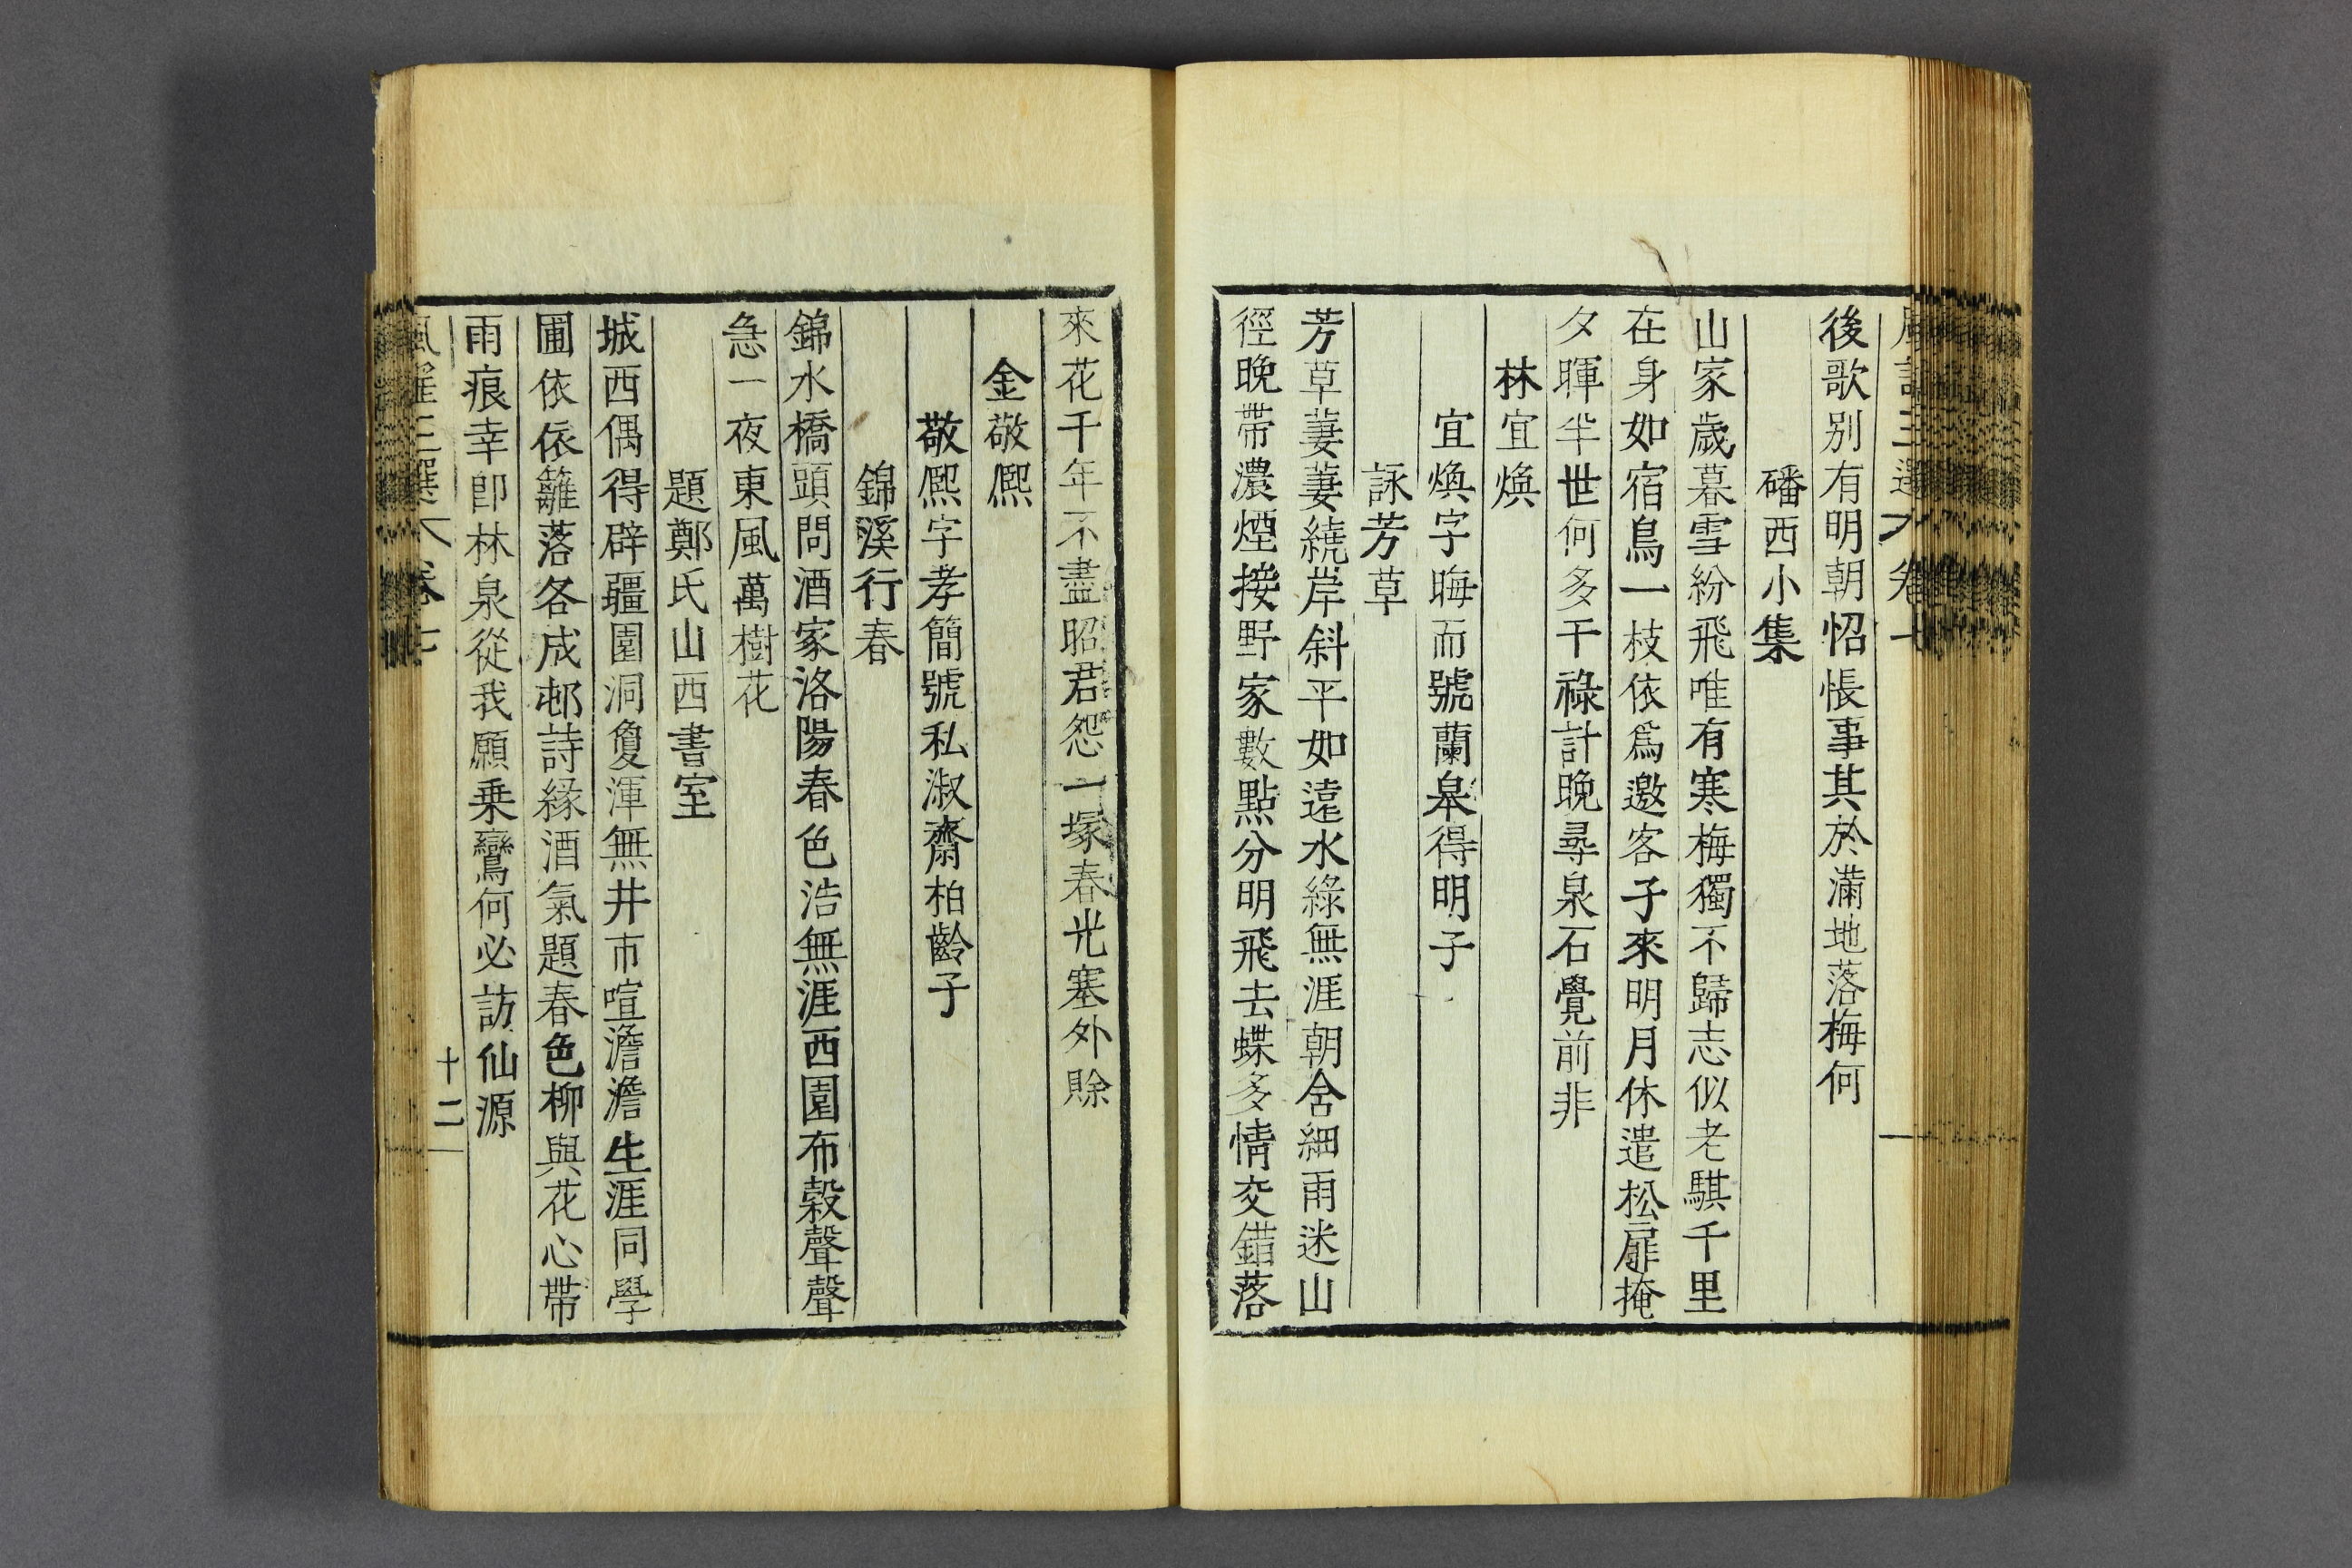 後歌別有明朝怊悵事其於滿地落梅何
磻西小集
山家歲暮雪紛飛唯有寒梅獨不歸志似老騏千里
在身如宿鳥一枝依爲邀客子來明月休遣松扉掩
夕暉半世何多干祿計晩尋泉石覺前非
林宜煥
宜煥字晦而號蘭皋得明子
詠芳草
芳草萋萋繞岸斜平如遠水綠無涯朝含細雨迷山
徑晩帶濃煙接野家數點分明飛去蝶多情交錯落
來花千年不盡昭君怨一塚春光塞外賖
金敬凞
敬凞字孝簡號私淑齋柏齡子
錦溪行春
錦水橋頭問酒家洛陽春色浩無涯西園布穀聲聲
急一夜東風萬樹花
題鄭氏山西書室
城西偶得辟疆園洞敻渾無井市喧澹澹生涯同學
圃依依籬落各成邨詩緣酒氣題春色柳與花心帶
雨痕幸卽林泉從我願乗鸞何必訪仙源
十二